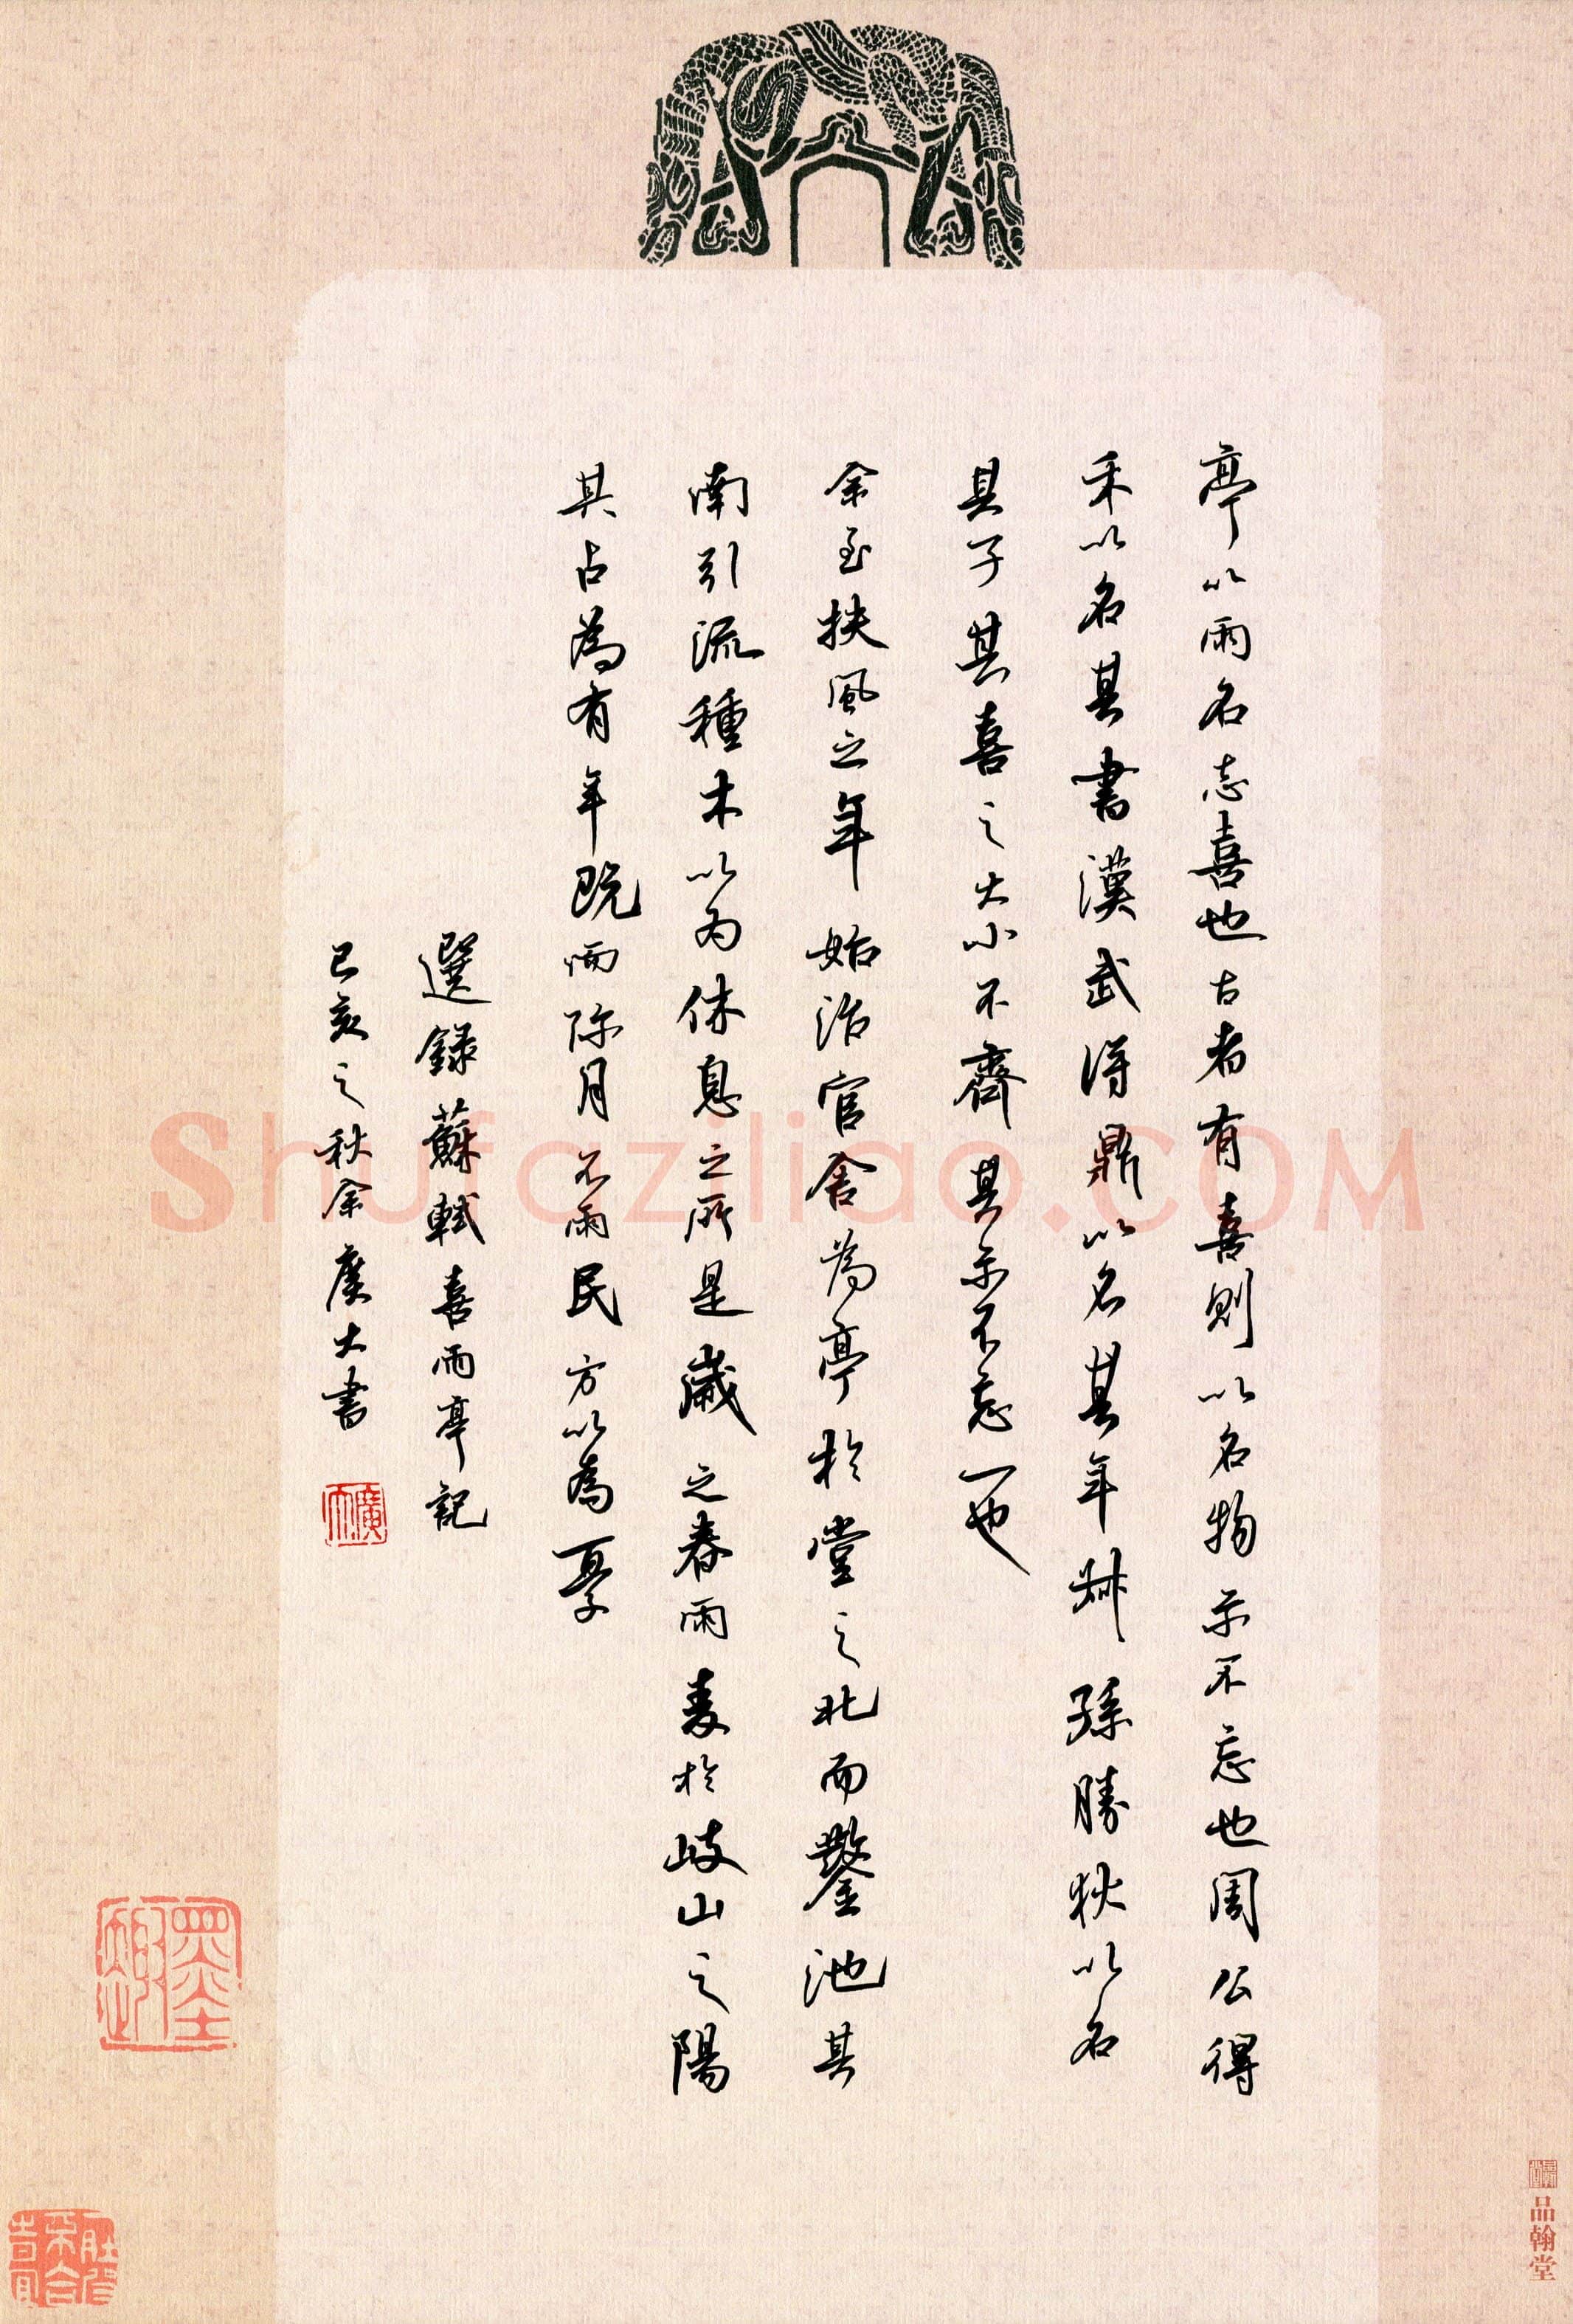 亭以雨名志喜也古者有喜則以名物示不忘也周公得
禾以名其書漢武得鼎以名其年叔孫勝狄以名
其子其喜之大小不齊其示不忘一也
余至扶風之年始治官舍為亭於堂之北而鑿池其
南引流種木以为休息之所是歲之春雨麦於岐山之陽
其占為有年既而弥月不雨民方以為憂
選録蘇軾喜雨亭記
己亥之秋余廣大書
廣大
墨趣
品翰堂
Shufaziliao.COM